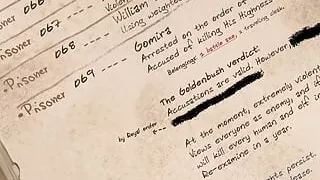 066
Prisoner 067
Prisoner 068
Prisoner 069
William
Using weighted
Gomira
Arrested on the order of
Accused of killing His Highness
Belongings: a battle axe, a traveling cloak.
The Goldenbush verdict:
Accusations are valid. However,
by Royal order
At the moment, extremely violent
Views everyone as enemy, and it
will kill every human and elf in
Re-examine in a year.
rights persist.
lease.